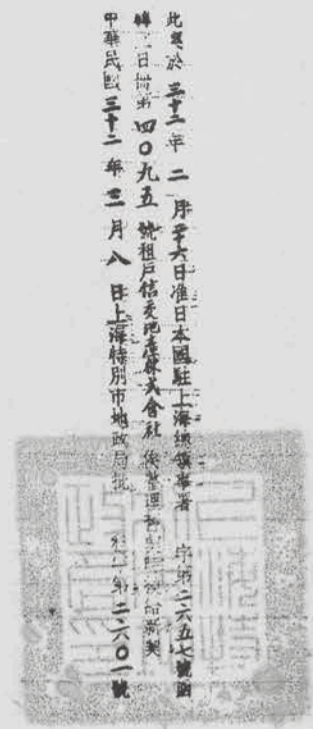 此契於三十二年二月二十六日准日本國駐上海總領事署 字第二六五七號函
轉 日冊第四〇九五號租戶信交地產株式會社 俟整理 換給新契
中華民國三十二年三月八日上海特別市地政局批 第二六〇一號